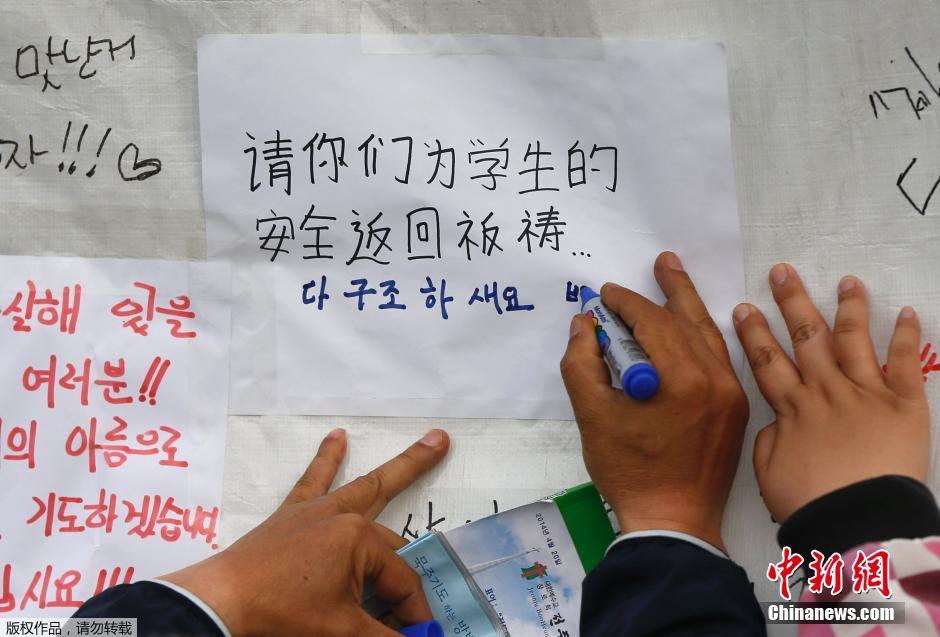 맞난거
자!!! ♡
请你们为学生的
安全返回祈祷...
다 구조 하 세요
실해 있을
여러분!!
의 아름으로
기도하겠습니다.
십시요!!!
2014년 4월 20일
묵주기도 하는 방
中新网
Chinanews.com
版权作品,请勿转载